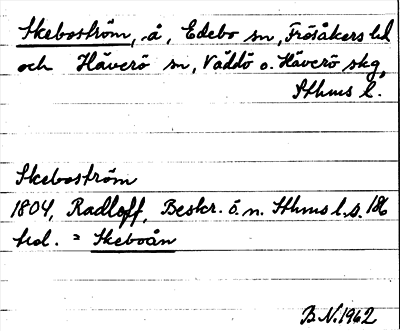 Skeboström, å, Edebo sn, Frösåkers hd
och Häverö sn, Väddö o. Häverö skg,
Sthms l.
Skeboström
1804, Radloff, Beskr. ö. n. Sthms l. s. 186
hol. = Skeboån
B.N. 1962